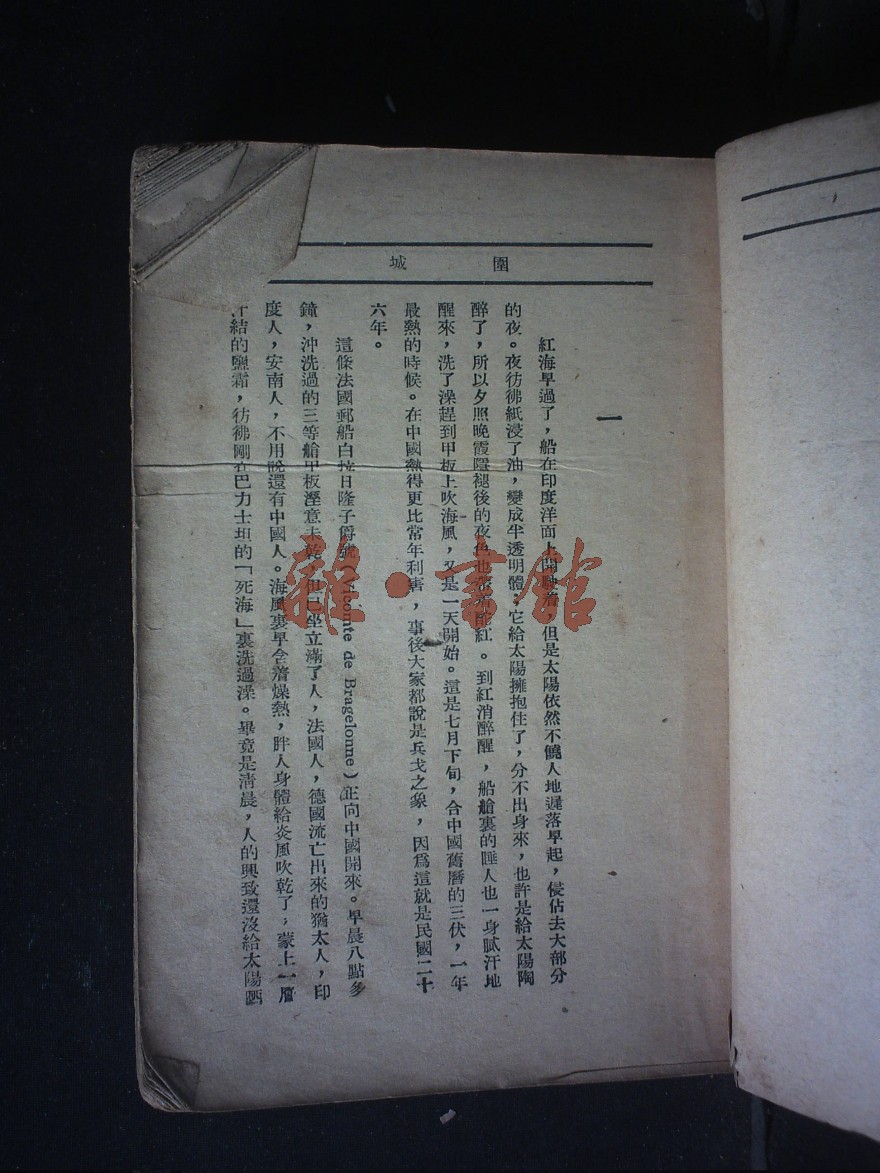 圍城
一
紅海早過了，船在印度洋面上開駛着，但是太陽依然不饒人地遲落早起，侵佔去大部分
的夜。夜彷彿紙浸了油，變成半透明體；它給太陽擁抱住了，分不出身來，也許是給太陽陶
醉了，所以夕照晚霞隱褪後的夜色也帶着酡紅。到紅消醉醒，船艙裏的睡人也一身膩汗地
醒來，洗了澡趕到甲板上吹海風，又是一天開始。這是七月下旬，合中國舊曆的三伏，一年
最熱的時候。在中國熱得更比常年利害，事後大家都說是兵戈之象，因爲這就是民國二十
六年。
這條法國郵船白拉日隆子爵號（Vicomte de Bragelonne）正向中國開來。早晨八點多
鐘，沖洗過的三等艙甲板溼意未乾，但已坐立滿了人，法國人，德國流亡出來的猶太人，印
度人，安南人，不用說還有中國人。海風裏早含着燥熱，胖人身體給炎風吹乾了，蒙上一層
汗結的鹽霜，彷彿剛在巴力士坦的「死海」裏洗過澡。畢竟是清晨，人的興致還沒給太陽晒
雜·書館